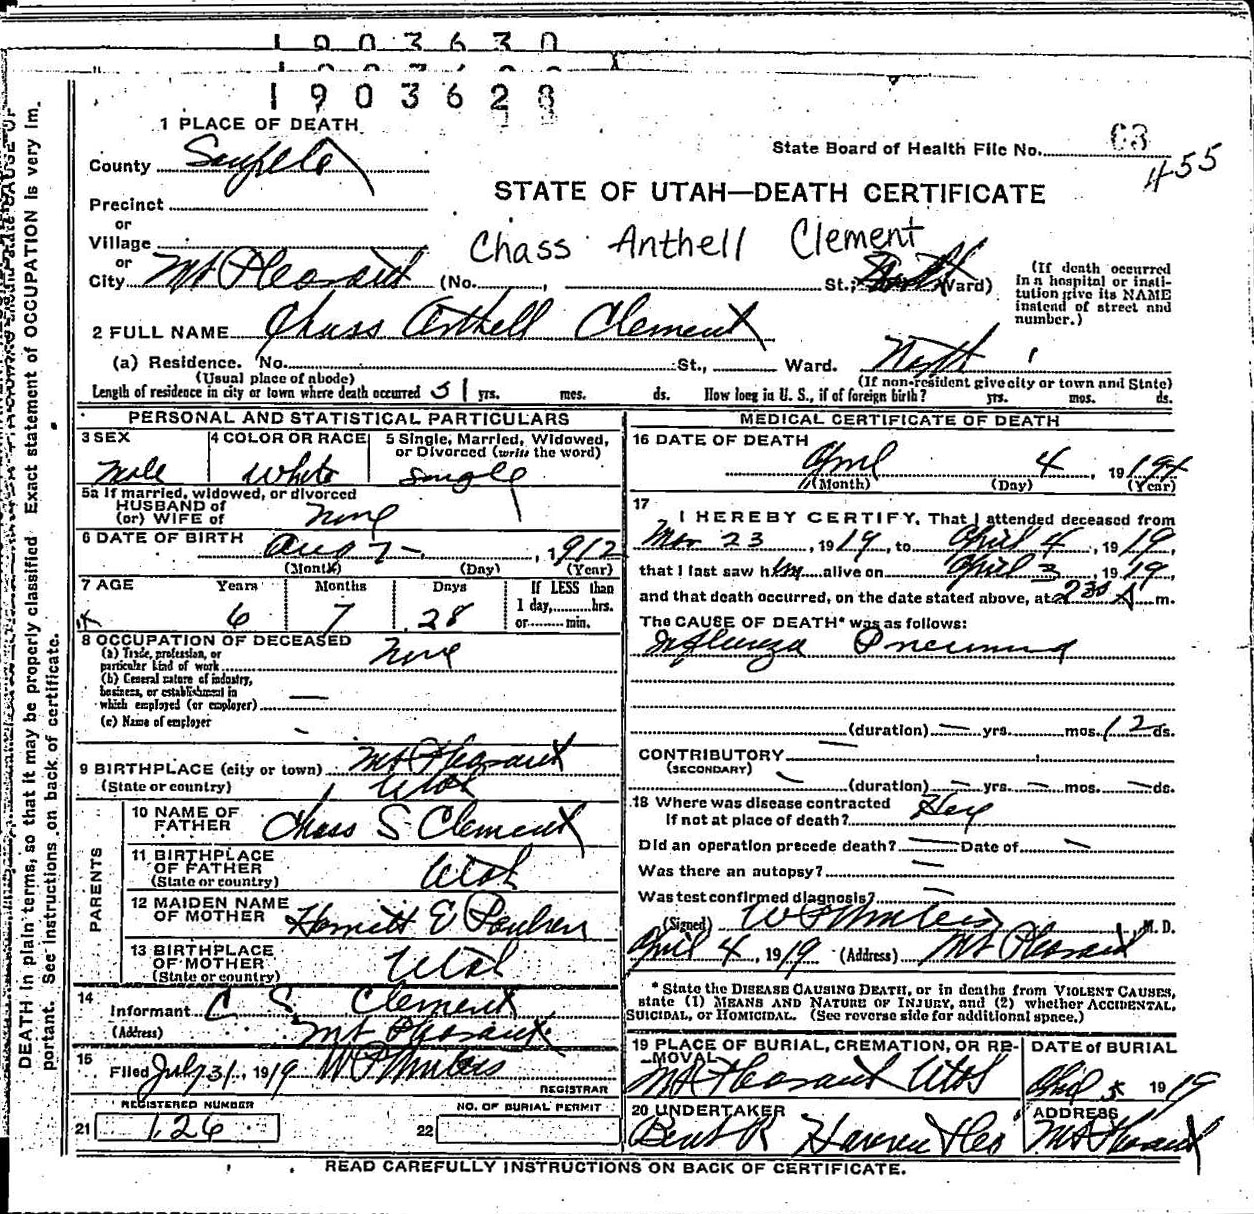 1903630
1903628
1 PLACE OF DEATH
State Board of Health File No. 63
455
County Sanpete
STATE OF UTAH—DEATH CERTIFICATE
Precinct
or
Village
Chass Anthell Clement
or
City Mt Pleasant (No. , St.; Ward)
(If death occurred in a hospital or institution give its NAME instead of street and number.)
2 FULL NAME Chass Anthell Clement
(a) Residence. No. St., Ward. North
(Usual place of abode) (If non-resident give city or town and State)
Length of residence in city or town where death occurred yrs. mos. ds. How long in U. S., if of foreign birth? yrs. mos. ds.
PERSONAL AND STATISTICAL PARTICULARS
3 SEX Male
4 COLOR OR RACE White
5 Single, Married, Widowed, or Divorced (write the word) Single
5a If married, widowed, or divorced
HUSBAND of
(or) WIFE of None
6 DATE OF BIRTH Aug 7 - , 1912
(Month) (Day) (Year)
7 AGE Years 6 Months 7 Days 28 If LESS than 1 day, hrs. or min.
8 OCCUPATION OF DECEASED None
(a) Trade, profession, or particular kind of work
(b) General nature of industry, business, or establishment in which employed (or employer) —
(c) Name of employer -
9 BIRTHPLACE (city or town) Mt Pleasant
(State or country) Utah
PARENTS
10 NAME OF FATHER Chass S Clement
11 BIRTHPLACE OF FATHER (State or country) Utah
12 MAIDEN NAME OF MOTHER Harriett E Paulsen
13 BIRTHPLACE OF MOTHER (State or country) Utah
14 Informant C S. Clement
(Address) Mt Pleasant
15 Filed July 31, 1919
REGISTRAR
REGISTERED NUMBER
21 126
NO. OF BURIAL PERMIT
22
MEDICAL CERTIFICATE OF DEATH
16 DATE OF DEATH
April 4, 1919
(Month) (Day) (Year)
17 I HEREBY CERTIFY, That I attended deceased from
Mar 23, 1919, to April 4, 1919,
that I last saw him alive on April 3, 1919,
and that death occurred, on the date stated above, at 2 30 A m.
The CAUSE OF DEATH* was as follows:
Influenza Pneumonia
(duration) — yrs. mos. 12 ds.
CONTRIBUTORY —
(SECONDARY)
(duration) — yrs. — mos. — ds.
18 Where was disease contracted
If not at place of death? Here
Did an operation precede death? — Date of —
Was there an autopsy? —
Was test confirmed diagnosis? —
(Signed) M. D.
April 4, 1919 (Address) Mt Pleasant
* State the DISEASE CAUSING DEATH, or in deaths from VIOLENT CAUSES, state (1) MEANS AND NATURE OF INJURY, and (2) whether ACCIDENTAL, SUICIDAL, or HOMICIDAL. (See reverse side for additional space.)
19 PLACE OF BURIAL, CREMATION, OR REMOVAL
Mt Pleasant Utah
DATE of BURIAL
April 5 1919
20 UNDERTAKER
Bent R
ADDRESS
Mt Pleasant
READ CAREFULLY INSTRUCTIONS ON BACK OF CERTIFICATE.
DEATH in plain terms, so that it may be properly classified. Exact statement of OCCUPATION is very im-
portant. See instructions on back of certificate.